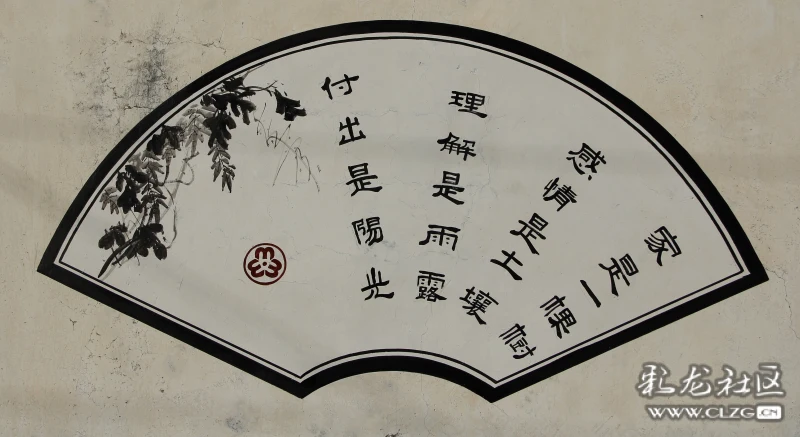 家是一棵樹
感情是土壤
理解是雨露
付出是陽光
彩龙社区
WWW.CLZG.CN